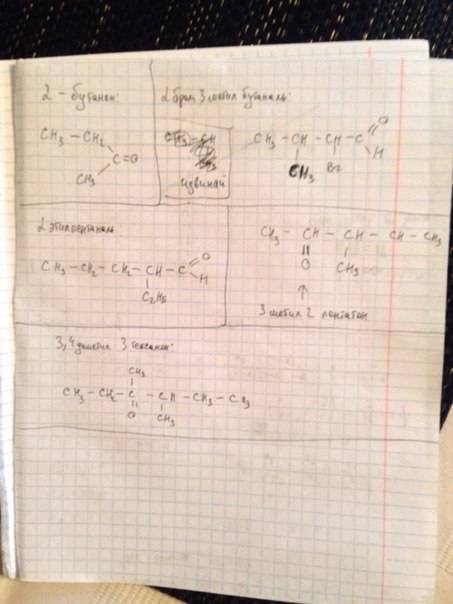 2 - бутанон:
CH3 - CH2
C=O
CH3
2 бром 3 метил бутаналь:
извиняй
CH3 - CH - CH - C
O
H
CH3
Br
2 этилпентаналь
CH3 - CH2 - CH2 - CH - C
O
H
C2H5
CH3 - CH - CH - CH - CH3
O
CH3
3 метил 2 пентанон
3,4 диметил 3 гексанон:
CH3
CH3 - CH2 - C - CH - CH3 - CH3
O
CH3